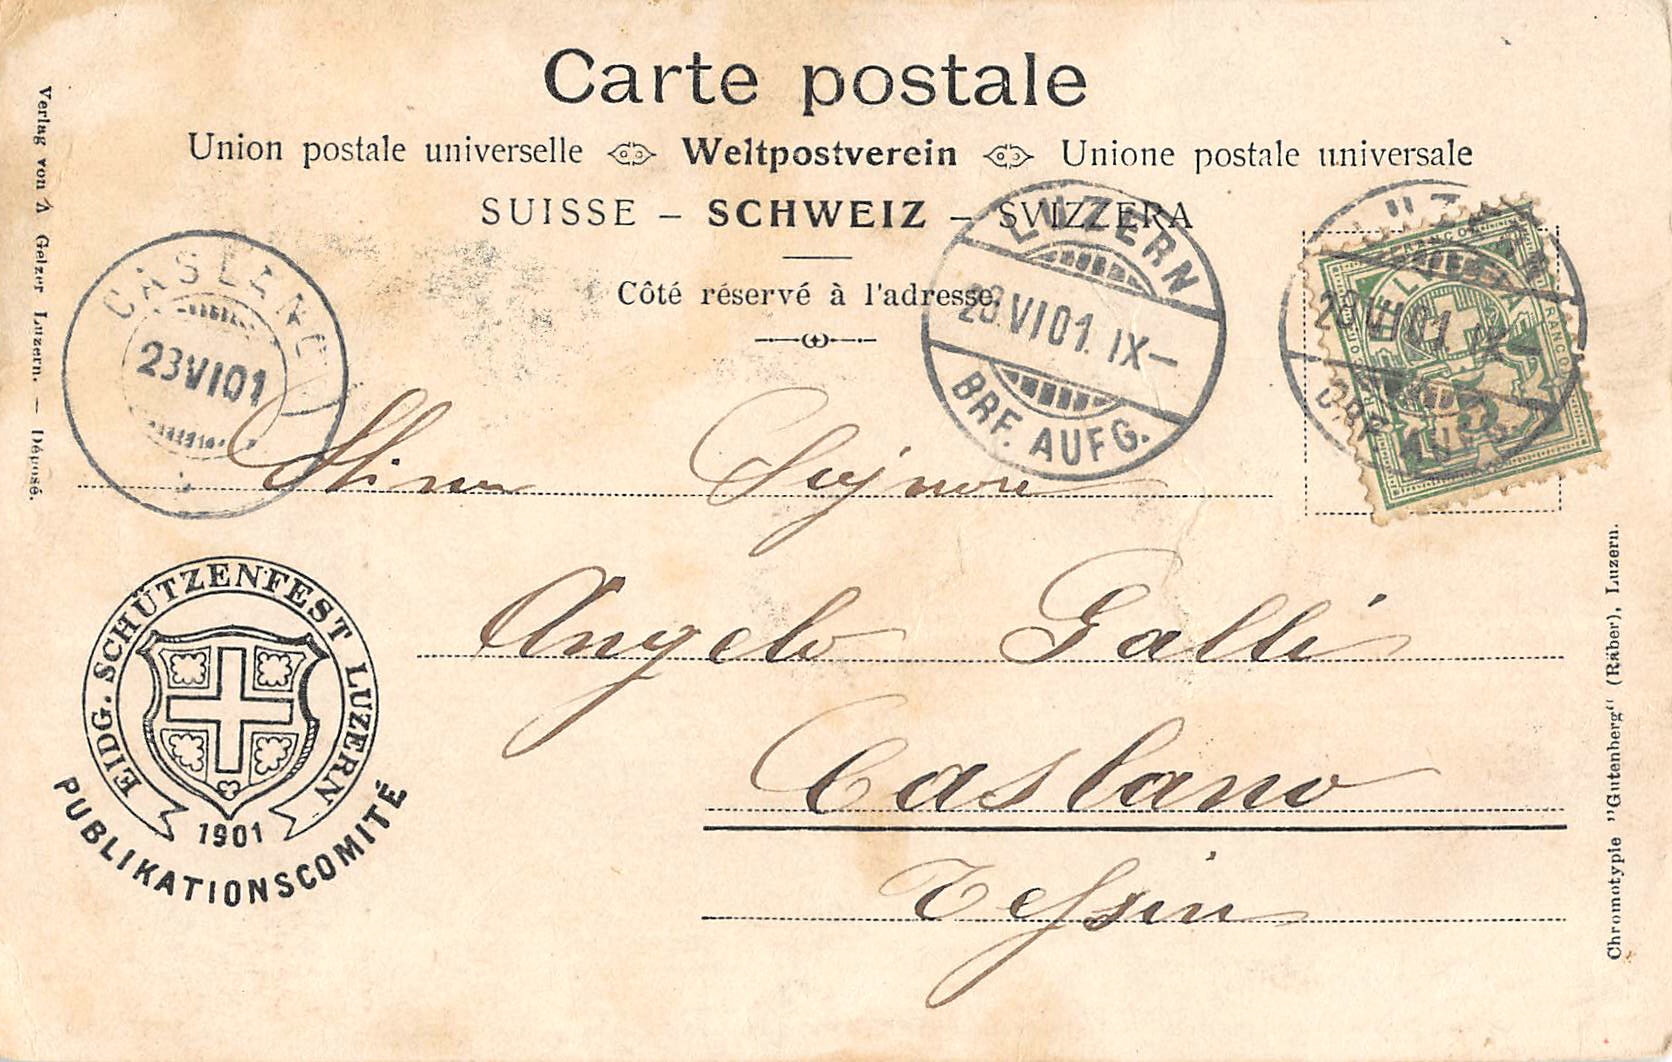 Carte postale
Union postale universelle Weltpostverein Unione postale universale
SUISSE – SCHWEIZ – SVIZZERA
Côté réservé à l'adresse.
Verlag von A Gelzer Luzern. — Déposé.
CASLANO
23 VI 01
LUZERN
23.VI 01. IX–
BRF. AUFG.
LUZERN
VI 01. IX–
BRF. AUFG.
FRANCO
HELVETIA
FRANCO
5
Signore
Angelo Galli
Caslano
Tessin
EIDG. SCHÜTZENFEST LUZERN
1901
PUBLIKATIONSCOMITÉ
Chromotypie "Gutenberg" (Räber), Luzern.